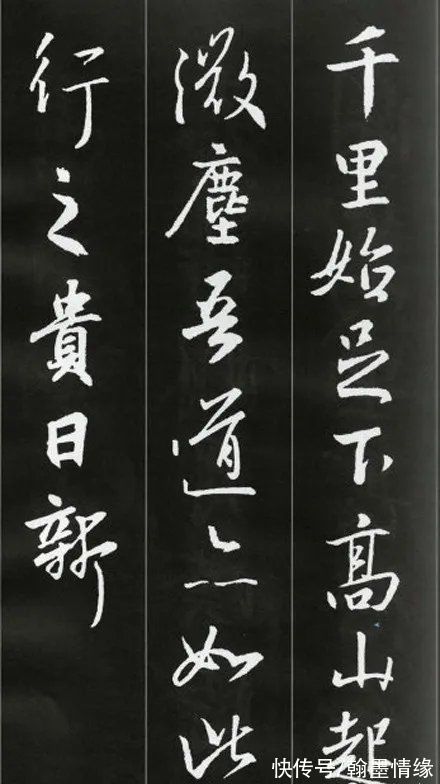 千里始足下高山起
微塵吾道亦如此
行之貴日新
快传号/翰墨情缘